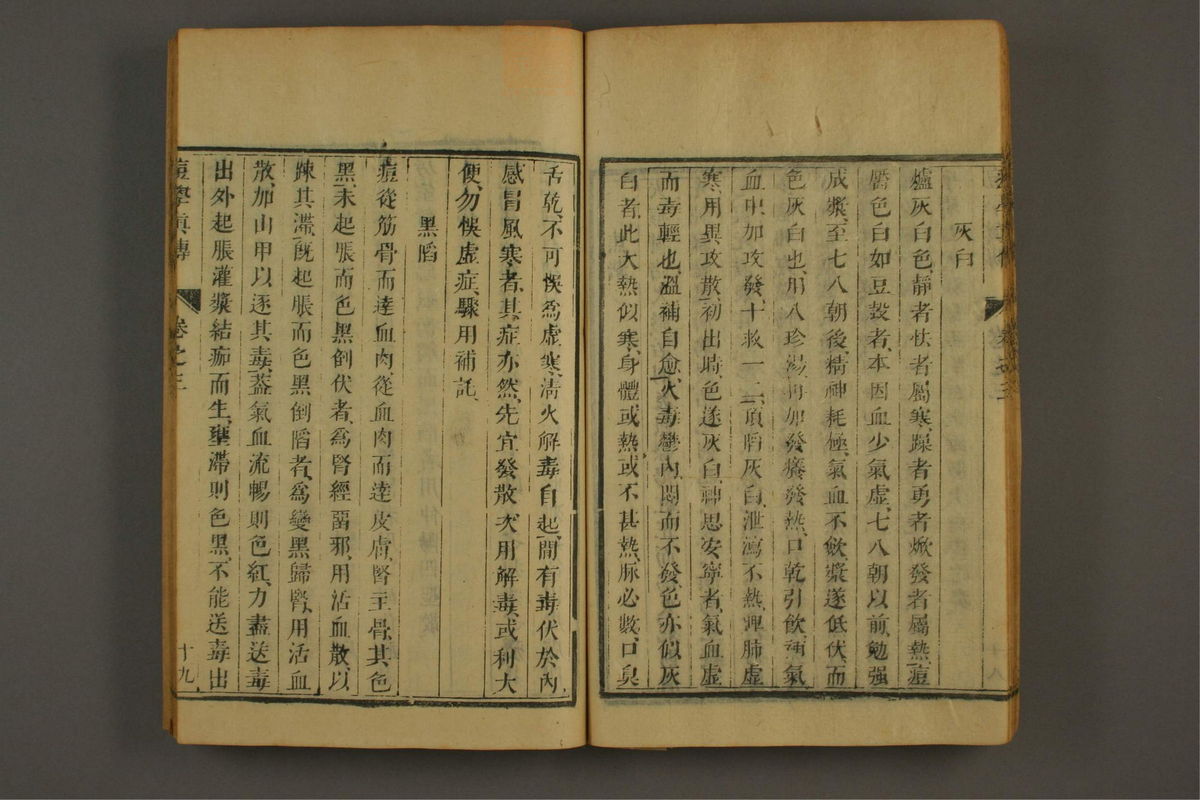 灰白
爐灰白色、靜者怯者屬寒、躁者勇者焮發者屬熱、痘
靨色白如豆殼者、本因血少氣虛、七八朝以前、勉强
成漿、至七八朝後、精神耗極、氣血不斂、漿遂低伏、而
色灰白也、用八珍湯、再加發癢發熱、口乾引飲、補氣
血中加攻發、十救一二、頂陷灰白、泄瀉不熱、脾肺虛
寒、用異攻散、初出時、色遂灰白、神思安寧者、氣血虛
而毒輕也、溫補自愈、火毒鬱內、悶而不發、色亦似灰
白者、此大熱似寒、身體或熱、或不甚熱、脉必數、口臭
十八
舌乾、不可悞爲虛寒、清火解毒自起、間有毒伏於內
感冒風寒者、其症亦然、先宜發散、次用解毒、或利大
便、勿悞虛症、驟用補託、
黑陷
痘從筋骨而達血肉、從血肉而達皮膚、腎主骨、其色
黑、未起脹而色黑倒伏者、爲腎經畱邪、用活血散、以
踈其滯、旣起脹而色黑倒陷者、爲變黑歸腎、用活血
散、加山甲以逐其毒、葢氣血流暢則色紅、力盡送毒
出外、起脹灌漿結痂而生、壅滯則色黑、不能送毒出
痘學眞傳
卷之三
十九